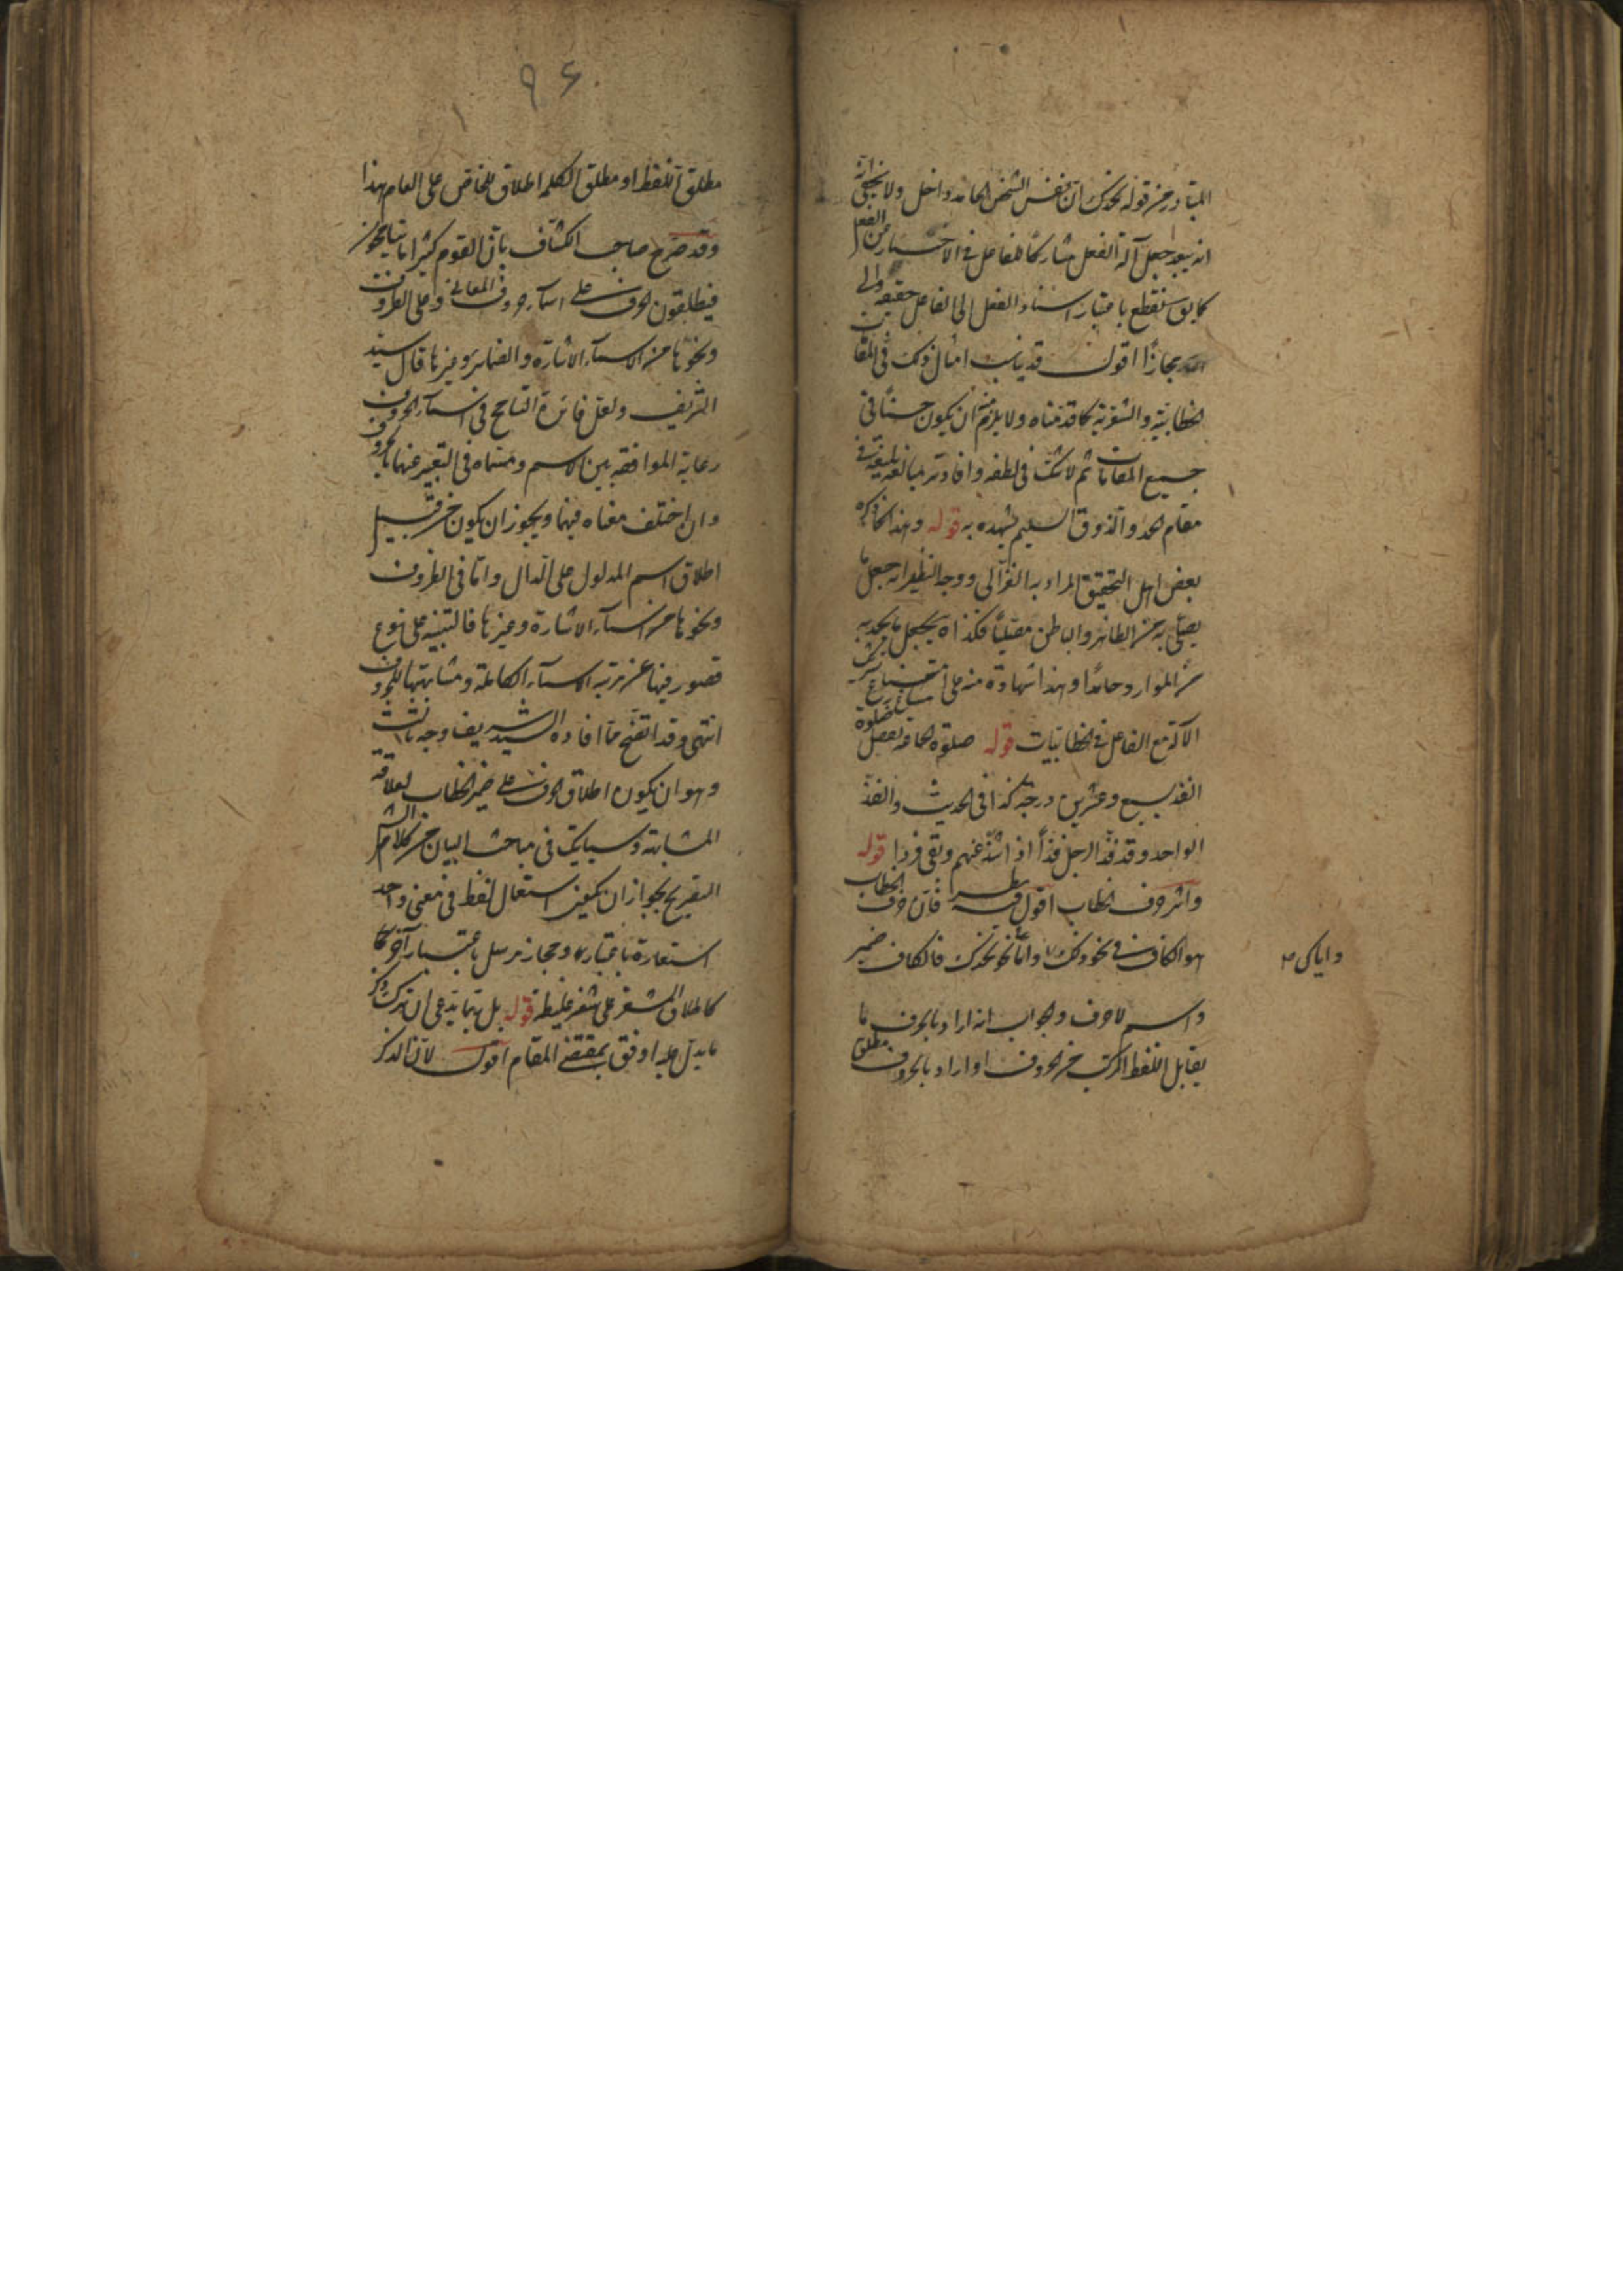 المتبادر من قوله نحمدك ان نفس الشخص الحامد داخل ولا يخفى
انه يبعد جعل آلة الفعل مشاركا للفاعل في الاخبار عن الفعل
باعتبار اسناد الفعل الى الفاعل حقيقة والى
مجازا اقول قد يناسب امثال ذلك في المقامات
الخطابية والشعرية كما قدمناه ولا يلزم منه ان يكون حسنا في
جميع المقامات ثم لا شك في لطفه وافادته مبالغة بليغة في
مقام الحمد والذوق السليم يشهد به قوله وهذا كما ذكره
بعض اهل التحقيق المراد به الغزالي ووجه النظير انه جعل ما
يصلي به من الظاهر والباطن مصليا فكذا يجعل ما يحمد به
من الموارد حامدا وهذا شهادة منه على
الآلة مع الفاعل في الخطابيات قوله صلوة الجماعة تفضل صلوة
الفذ بسبع وعشرين درجة كذا في الحديث والفذ
الواحد وقد فذ الرجل فذا اذا شذ عنهم وبقي فردا قوله
واثر حرف الخطاب اقول فيه نظر فان حرف الخطاب
هو الكاف في نحو ذلك واما نحو نحمدك فالكاف ضمير
واياك
واسم لا حرف والجواب انه اراد بالحرف ما
يقابل اللفظ المركب من الحروف او اراد بالحروف مطلق
٩٤
مطلق اللفظ او مطلق الكلمة اطلاق للخاص على العام هذا
وقد صرح صاحب الكشاف بان القوم كثيرا ما يتجوزون
فيطلقون الحرف على اسماء حروف المعاني وعلى الظروف
ونحوها من الاسماء الاشارة والضماير وغيرها قال السيد
الشريف ولعل فائدة التسامح في اسماء الحروف
رعاية الموافقة بين الاسم ومسماه في التعبير عنهما بالحروف
وان اختلف معناه فيهما ويجوز ان يكون من قبيل
اطلاق اسم المدلول على الدال واما في الظروف
ونحوها من اسماء الاشارة وغيرها فالتنبيه على نوع
قصور فيها عن مرتبة الاسماء الكاملة ومشابهتها للحروف
انتهى وقد اتضح مما افاده السيد الشريف وجه ثالث
وهو ان يكون اطلاق الحرف على ضمير الخطاب لعلاقة
المشابهة وسيأتيك في مباحث البيان من كلام الشم
التصريح بجواز ان يكون استعمال لفظ في معنى واحد
استعارة باعتبار ومجاز مرسل باعتبار آخر كما
كاطلاق المشفر على شفة غليظة قوله بل ربما يدعى ان ترك ذكر
ما يدل عليه اوفق بمقتضى المقام اقول لان الذكر